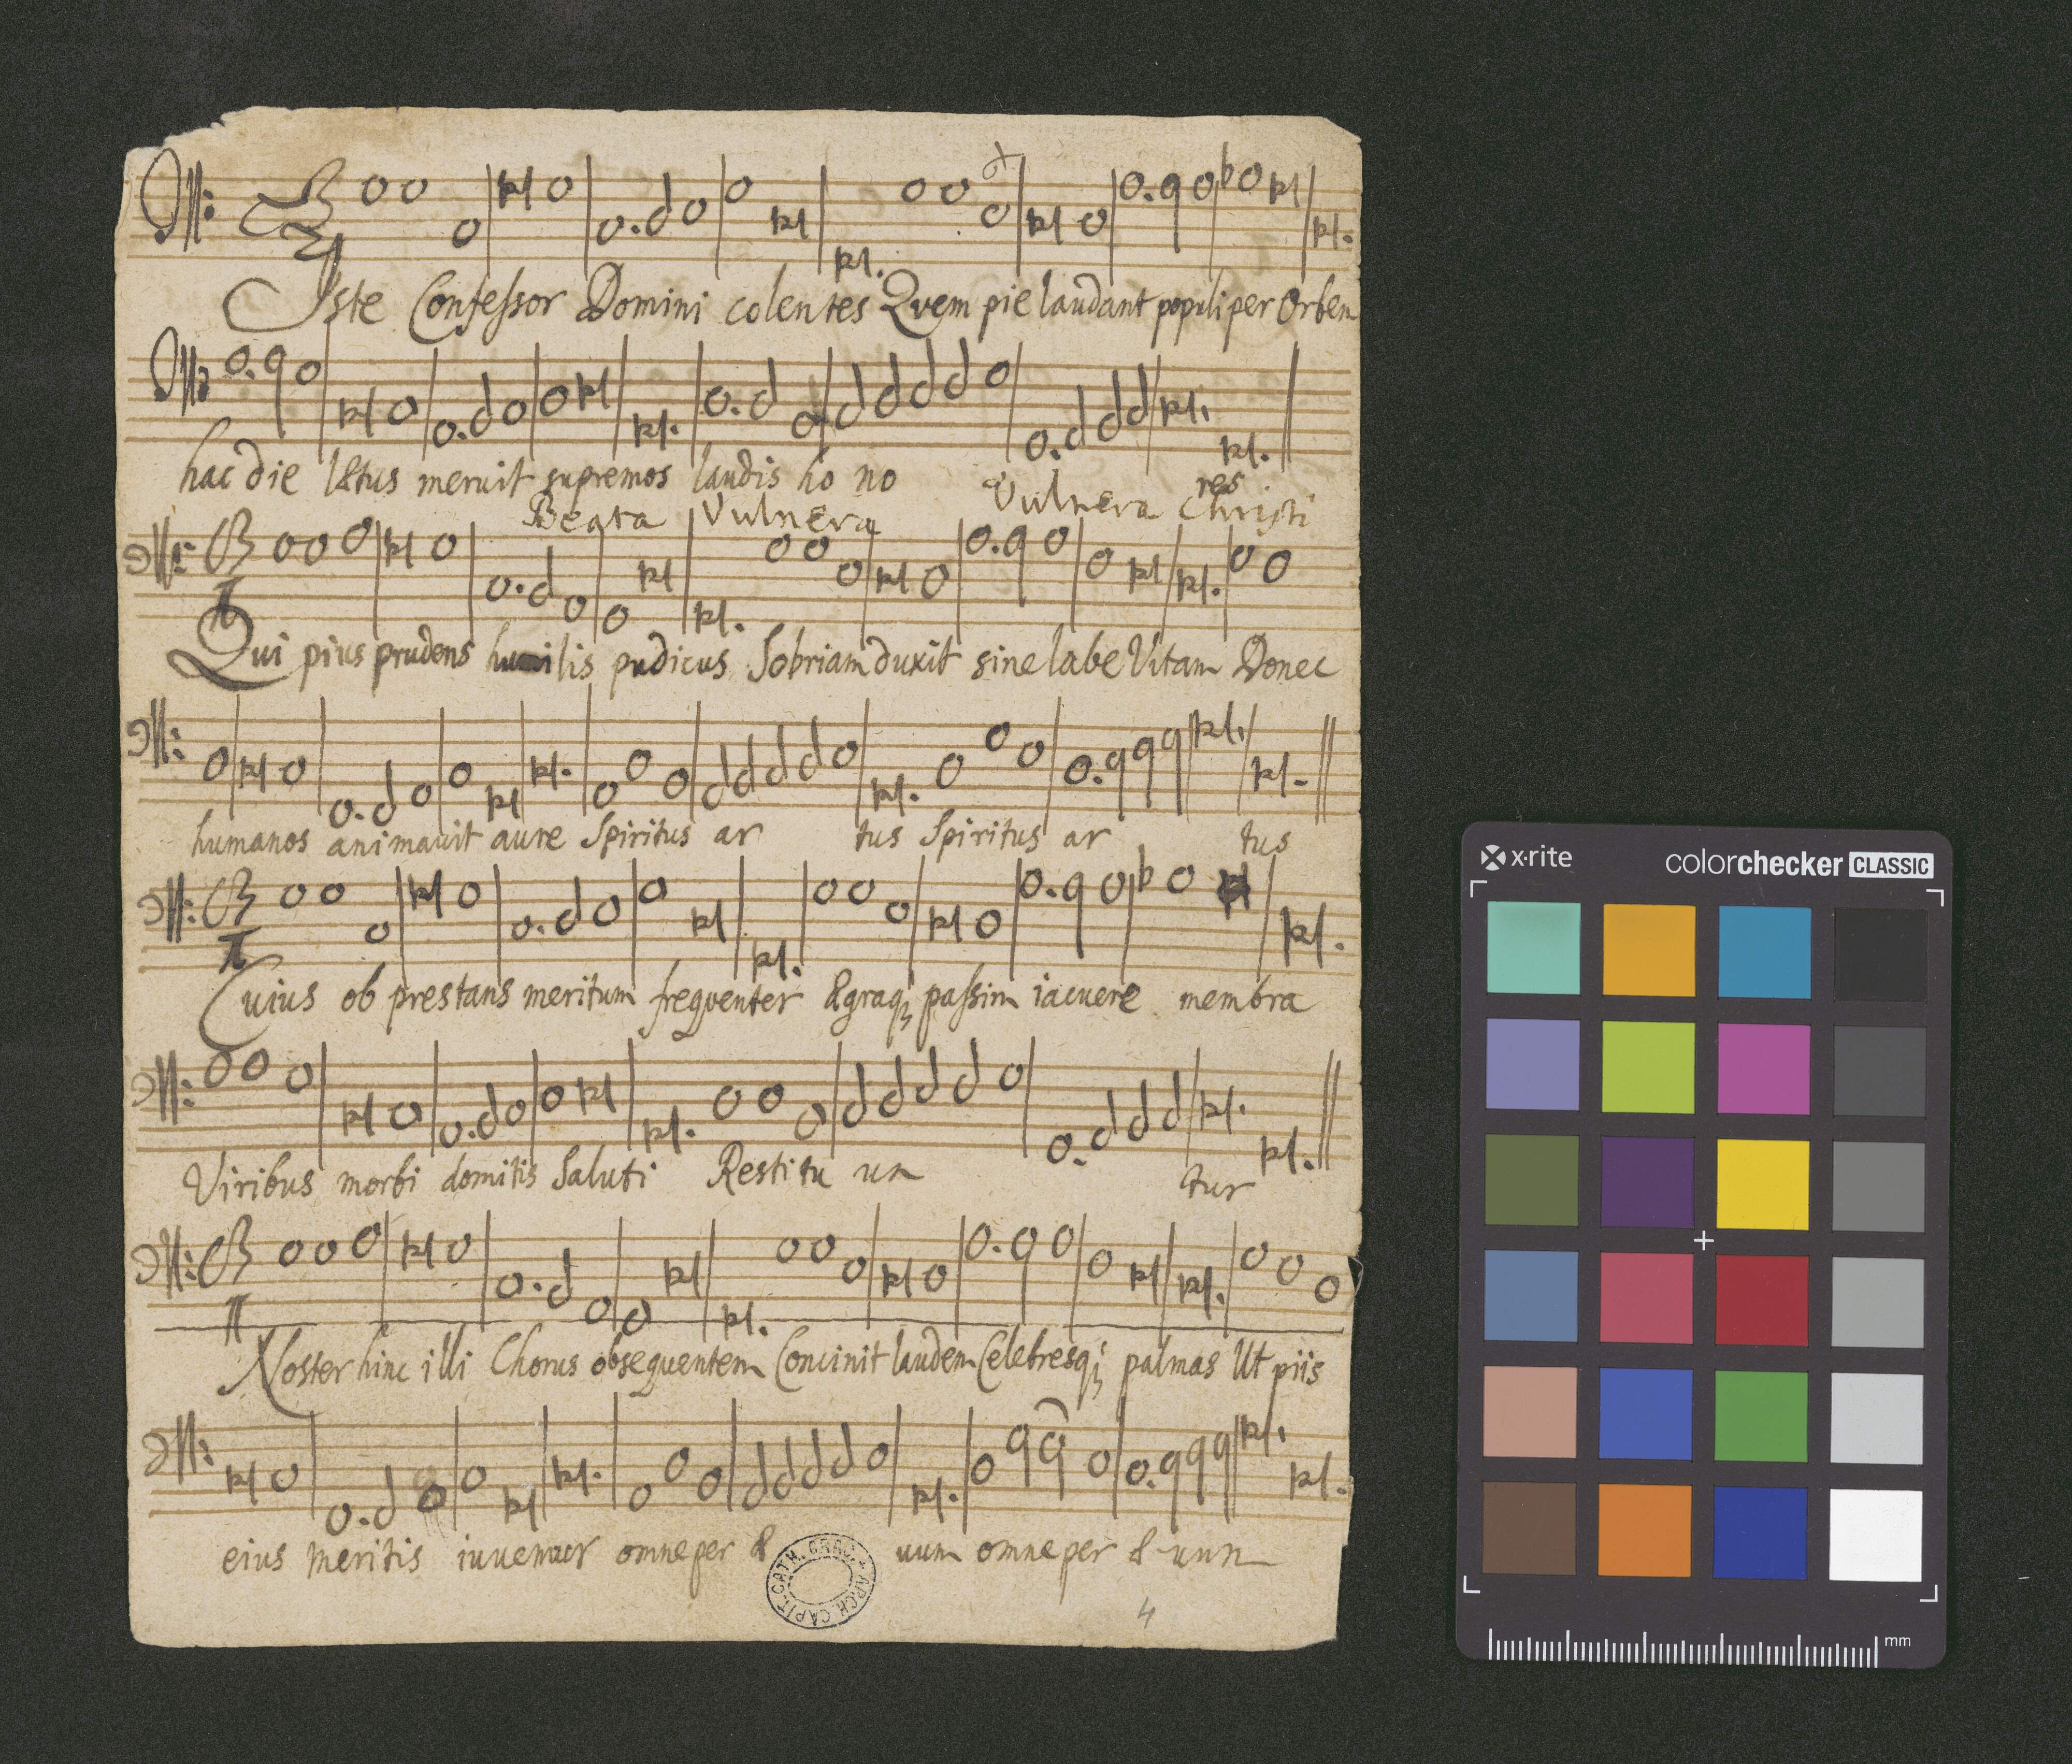 Iste Confessor Domini colentes Quem pie laudant populi per Orbem
hac die lætus meruit supremos laudis ho no res
Beata Vulnera Vulnera Christi
Qui pius prudens humilis pudicus Sobriam duxit sine labe Vitam Donec
humanos animavit aure Spiritus ar tus Spiritus ar tus
Cuius ob prestans meritum frequenter ægraq; passim iacuere membra
Viribus morbi domitis Saluti Restitu un tur
Noster hinc illi Chorus obsequentem Concinit laudem Celebresq; palmas Ut piis
eius meritis iuvemur omne per æ vum omne per æ vum
CAPIT. CATH. CRAC. ARCH.
4
x·rite
colorchecker CLASSIC
mm